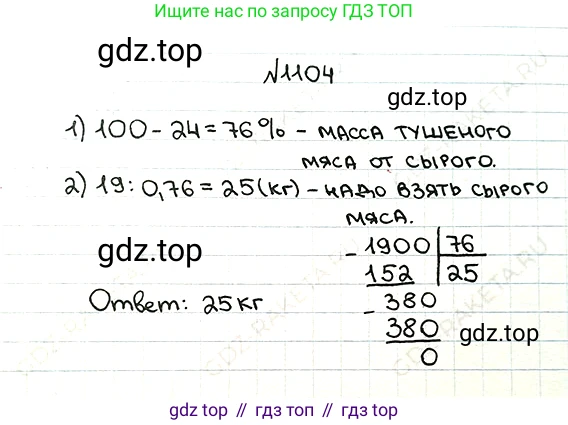 Ищите нас по запросу ГДЗ ТОП
gdz.top
№1104
gdz.top
1) 100 - 24 = 76% - масса тушеного
мяса от сырого.
2) 19 : 0,76 = 25 (кг) - надо взять сырого
мяса.
gdz.top
- 1900 | 76
152 | 25
Ответ: 25 кг
- 380
380
gdz.top
0
gdz.top // гдз топ // gdz.top
GDZ-RAKETA.RU